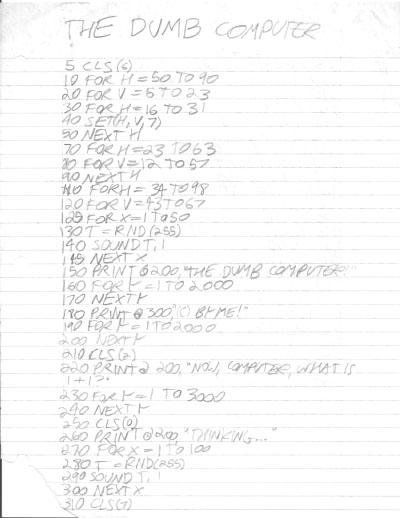 THE DUMB COMPUTER
5 CLS(6)
10 FOR H=50 TO 90
20 FOR V=5 TO 23
30 FOR H=16 TO 31
40 SET(H,V,7)
50 NEXT H
70 FOR H=23 TO 63
80 FOR V=12 TO 57
90 NEXT H
110 FOR H=34 TO 98
120 FOR V=43 TO 67
125 FOR X=1 TO 50
130 T=RND(255)
140 SOUND T,1
145 NEXT X
150 PRINT@200,"THE DUMB COMPUTER!"
160 FOR Y=1 TO 2000
170 NEXT Y
180 PRINT@300,"(C) BY ME!"
190 FOR Y=1 TO 2000
200 NEXT Y
210 CLS(2)
220 PRINT@ 200,"NOW, COMPUTER, WHAT IS
1+1?"
230 FOR Y=1 TO 3000
240 NEXT Y
250 CLS(0)
260 PRINT@200,"THINKING..."
270 FOR X=1 TO 100
280 T=RND(255)
290 SOUND T,1
300 NEXT X
310 CLS(7)